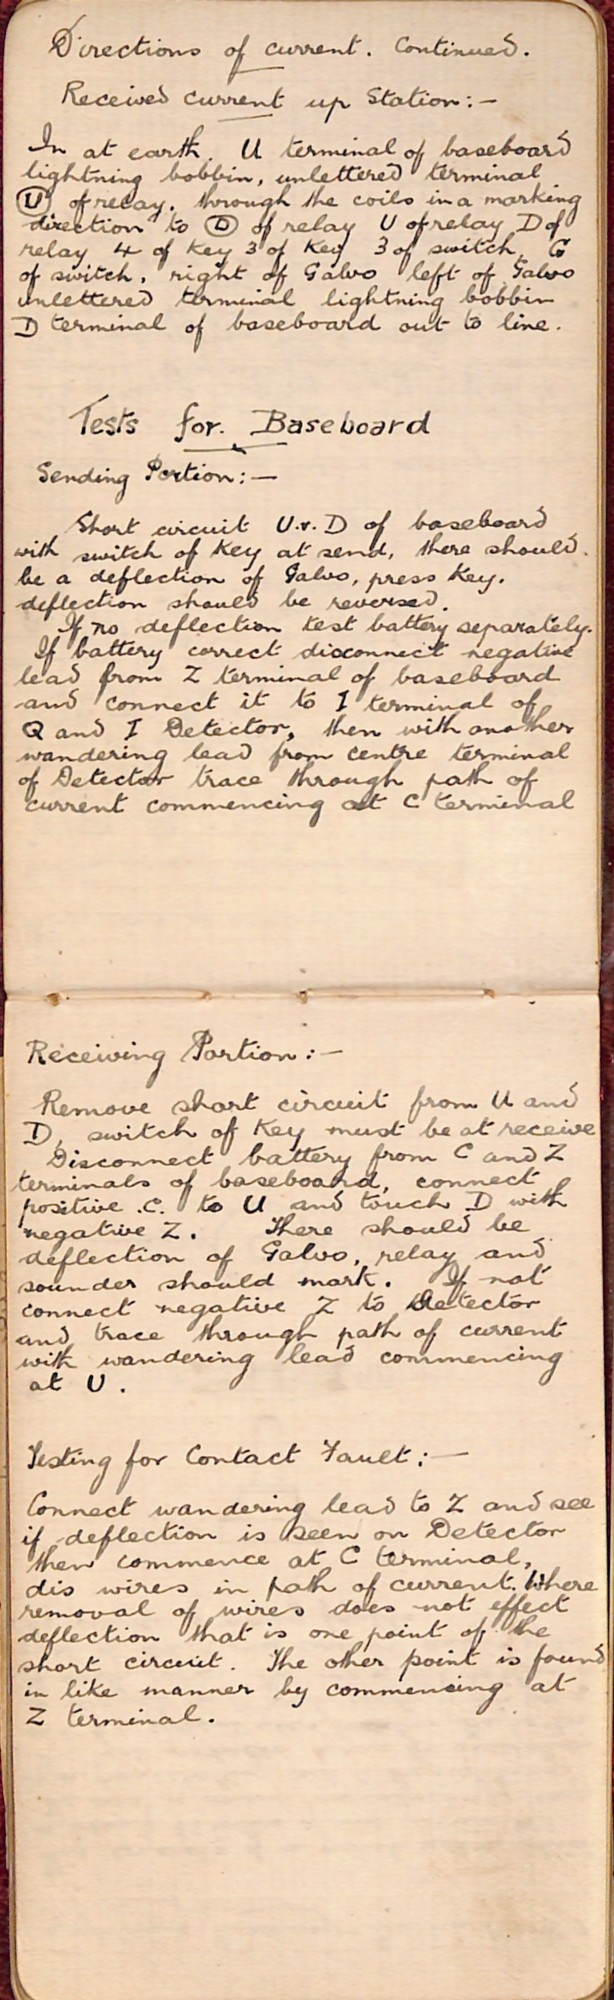 Directions of current. Continued.
Received current up Station:-
In at earth, U terminal of baseboard
lightning bobbin, unlettered terminal
Ⓤ of relay, through the coils in a marking
direction to Ⓓ of relay U of relay D of
relay 4 of key 3 of key 3 of switch, G
of switch, right of Galvo left of Galvo
unlettered terminal lightning bobbin
D terminal of baseboard out to line.
Tests for. Baseboard
Sending Portion:-
Short circuit U.v. D of baseboard
with switch of key at send, there should.
be a deflection of Galvo, press key.
deflection should be reversed.
If no deflection test battery separately.
If battery correct disconnect negative
lead from Z terminal of baseboard
and connect it to I terminal of
Q and I Detector, then with another
wandering lead from centre terminal
of Detector trace through path of
current commencing at C terminal
Receiving Portion:-
Remove short circuit from U and
D, switch of key must be at receive
Disconnect battery from C and Z
terminals of baseboard, connect
positive .C. to U and touch D with
negative Z. There should be
deflection of Galvo, relay and
sounder should mark. If not
connect negative Z to Detector
and trace through path of current
with wandering lead commencing
at U.
Testing for Contact Fault:-
Connect wandering lead to Z and see
if deflection is seen on Detector
then commence at C terminal,
dis wires in path of current. Where
removal of wires does not effect
deflection that is one point of the
short circuit. The other point is found
in like manner by commencing at
Z terminal.